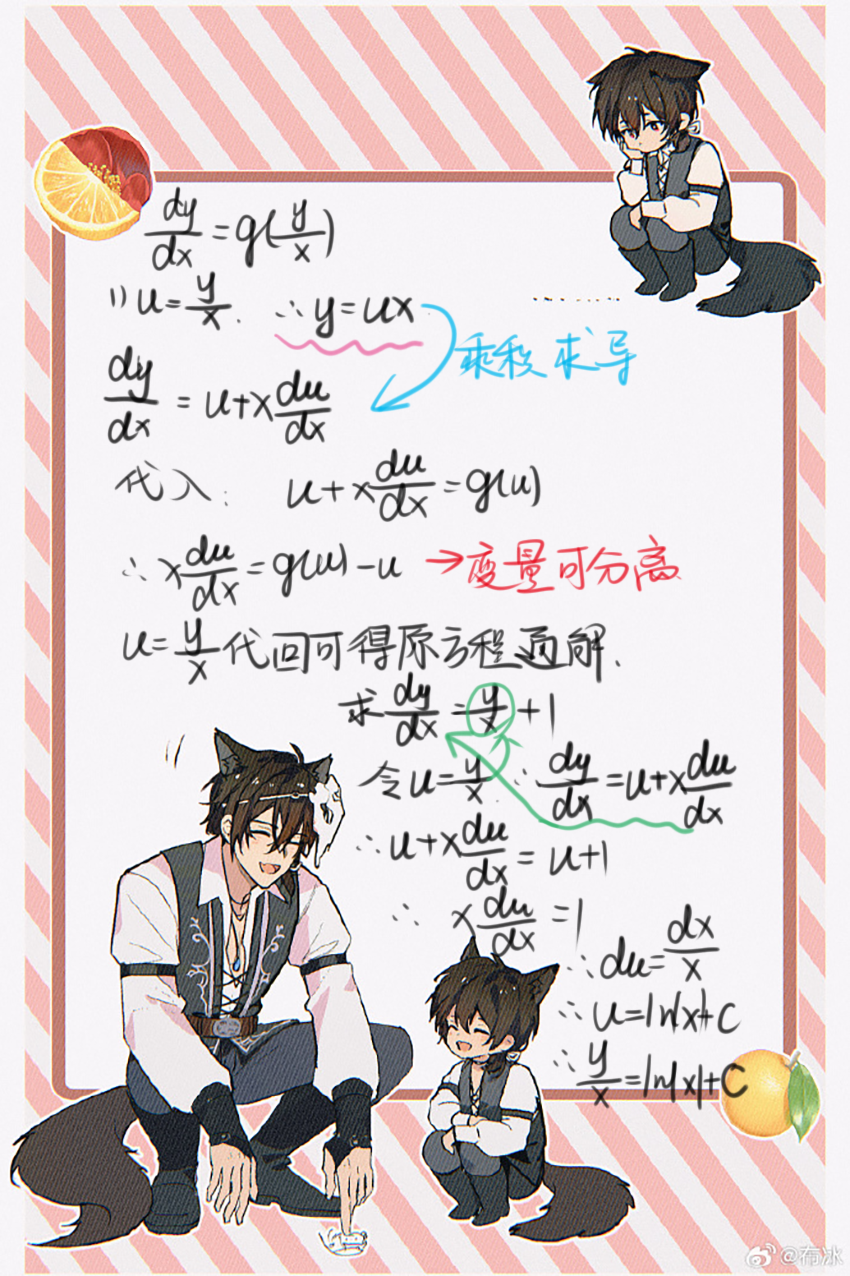 dy/dx = g(y/x)
1) u = y/x. ∴ y = ux
乘积求导
dy/dx = u + x du/dx
代入: u + x du/dx = g(u)
∴ x du/dx = g(u) - u → 变量可分离
u = y/x 代回可得原方程通解.
求 dy/dx = y/x + 1
令 u = y/x. ∴ dy/dx = u + x du/dx
∴ u + x du/dx = u + 1
∴ x du/dx = 1
∴ du = dx/x
∴ u = ln|x| + C
∴ y/x = ln|x| + C
@布冰